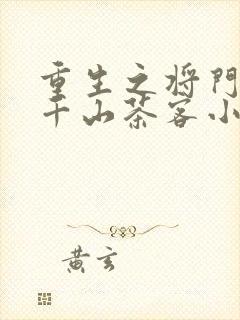 重生之将門
千山茶客小
黄玄